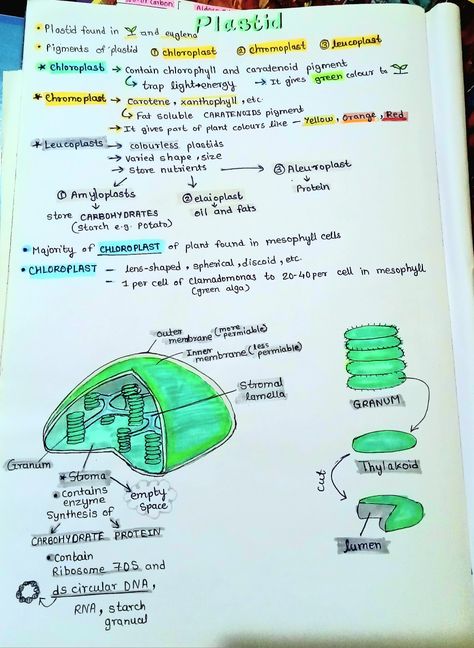 Plastid
• Plastid found in and euglena
• Pigments of plastid ① chloroplast ② chromoplast ③ leucoplast
* Chloroplast → Contain chlorophyll and caradenoid pigment
↳ trap light energy → It gives green colour to
* Chromoplast → Carotene, xanthophyll, etc.
↳ Fat soluble CARATENOIDS pigment
→ It gives part of plant colours like – Yellow, Orange, Red.
* Leucoplasts → colourless plastids
→ Varied shape, size
→ Store nutrients → ③ Aleuroplast
Protein
① Amyloplasts
store CARBOHYDRATES
(starch e.g. Potato)
② elaioplast
oil and fats
• Majority of CHLOROPLAST of plant found in mesophyll cells
• CHLOROPLAST – lens-shaped, spherical, discoid, etc.
– 1 per cell of Clamadomonas to 20-40 per cell in mesophyll
(green alga)
outer membrane (more permiable)
Inner membrane (less permiable)
Stromal lamella
Granum
* Stroma
empty space
• Contains
enzyme
Synthesis of
CARBOHYDRATE PROTEIN
• Contain
Ribosome 70S and
ds circular DNA,
RNA, starch
granual
GRANUM
Thylakoid
cut
lumen